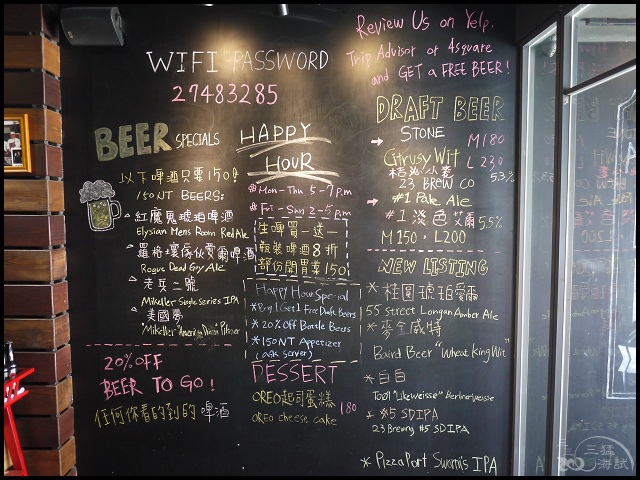 WIFI PASSWORD
27483285
Review Us on Yelp,
Trip Advisor or 4square
and GET a FREE BEER!
BEER SPECIALS
以下啤酒只要150!
150NT BEERS:
紅魔鬼琥珀啤酒
Elysian Mens Room Red Ale
羅格壞傢伙麥爾啤酒
Rogue Dead Guy Ale
老兵二號
Mikeller Single Series IPA
美國夢
"Mikeller" American Dream Pilsner
20% OFF
BEER TO GO!
任何你看的到的啤酒
HAPPY
HOUR
* Mon-Thu 5-7 p.m
* Fri-Sun 2-5 p.m
生啤買一送一
瓶裝啤酒8折
部份開胃菜150
Happy Hour Special
* Buy 1 Get 1 Free Draft Beers
* 20% Off Bottle Beers
* 150NT Appetizer
(ask server)
DESSERT
OREO起司蛋糕
OREO cheese cake 180
DRAFT BEER
STONE M180
Citrusy Wit L230
桔心小麥 5.3%
23 BREW CO
#1 Pale Ale
#1 淡色艾爾 5.5%
M150 · L200
NEW LISTING
* 桂圓琥珀愛爾
55 Street Longan Amber Ale
* 麥全威特
Baird Beer "Wheat King Wit"
* 白白
Tool "Like Weisse" Berlinerweisse
* #5 SDIPA
23 Brewing #5 SDIPA
* Pizza Port Swami's IPA
三猛
海試